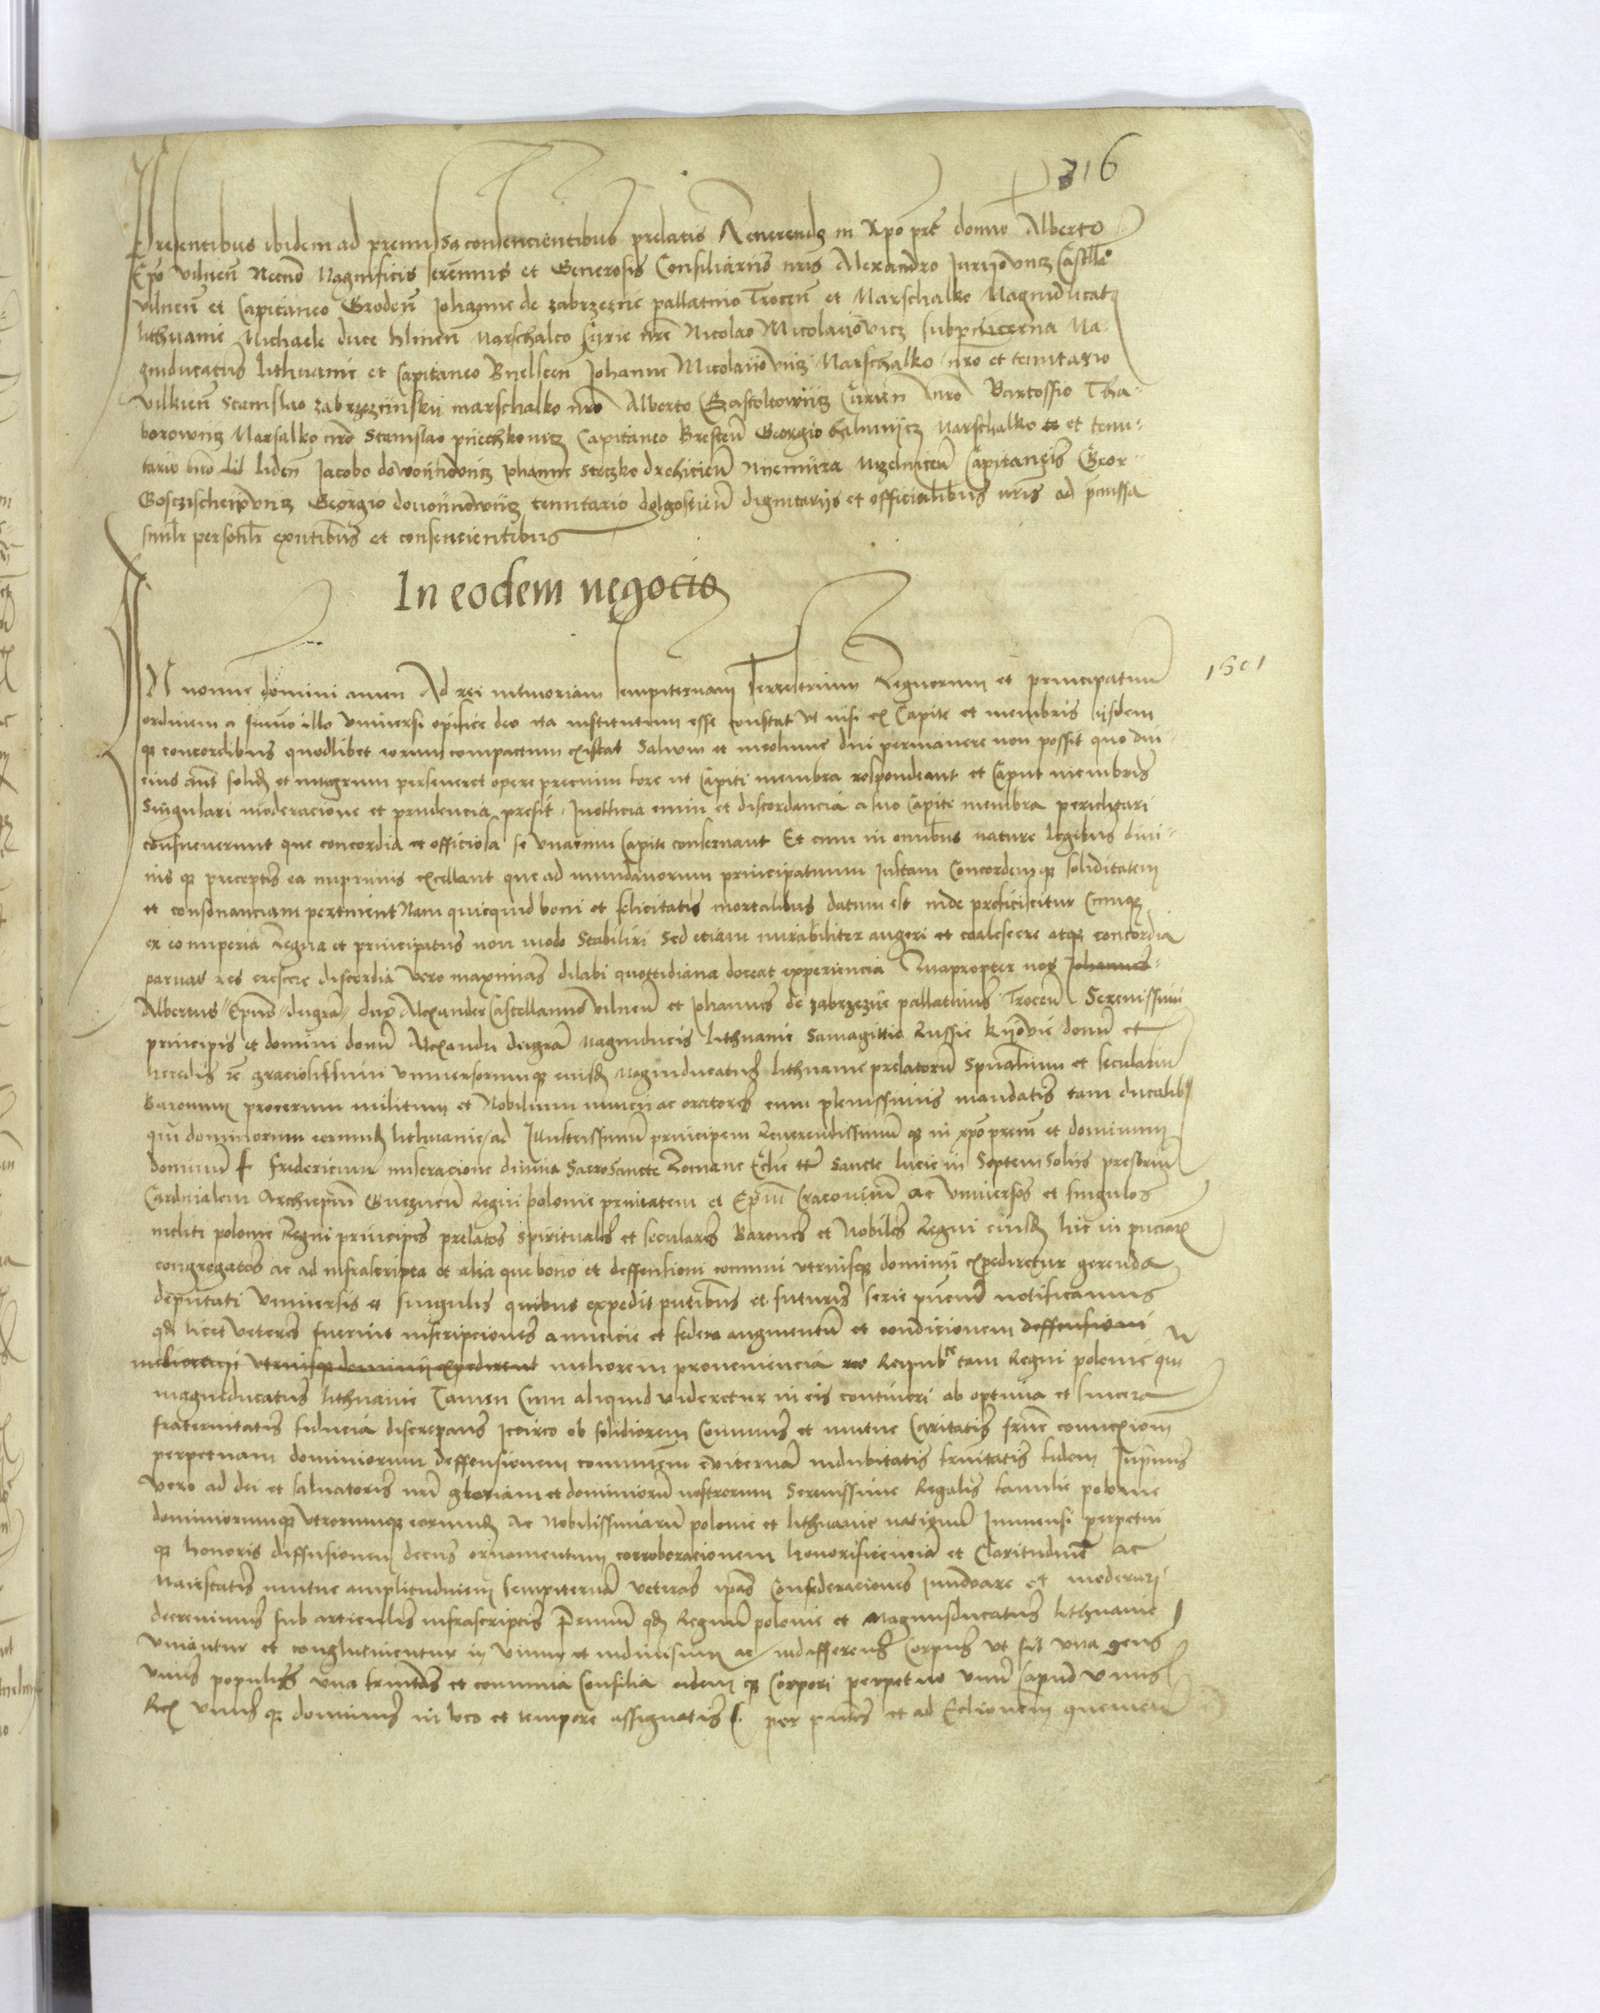 316
Presentibus ibidem ad premissa consencientibus prelatis Reverendo in Xpo pre domino Alberto
Epo Vilnen Necnon Magnificis et Generosis Consiliariis nris Alexandro Castellano
Vilnen et Capitaneo Groden Johanne de zabrzezcie pallatino Trocen et Marschalko Magniducatus
lithvanie Michaele duce hlinen Marschalco Curie nre Nicolao Nicolaiovicz subpincerna Ma-
gniducatus lithvanie et Capitaneo Bielscen Johanne Nicolaijovicz Marschalko nro et tenutario
Vilkien Stanislao zabrzezinskii marschalko nro Alberto Gastoltowicz Curien nro Bartossio Tha-
borowicz Marsalko nro Stanislao Capitaneo Bresten Georgio Marschalko et tenu-
tario liden Jacobo dowoinovicz Johanne Steczko drohicien Niemira Mzelnicen Capitaneis Geor
Georgio dovoinowicz tenutario dignitariis et officialibus nris ad pmissa
simlr personlr exntibus et consencientibus
In eodem negocio
1501
IN nomine domini amen Ad rei memoriam sempiternam Terrestrium Regnorum et principatuum
ordinem a summo illo universi opifice deo ita institutum esse constat ut nisi ex Capite et membris iisdem
qz concordibus quodlibet eorum compactum existat Salvum et incolume diu permanere non possit quo diu-
cius aut solid et integrum perseveret opere precium fore ut Capiti membra respondeant et Caput membris
Singulari moderacione et prudencia presit Inofficia enim et discordancia a suo Capite membra periclitari
consueverunt que concordia et officiosa se una cum Capite conservant Et cum in omnibus nature legibus divi-
nis qz preceptis ea inprimis excellant que ad mundanorum principatuum Justam Concordem qz soliditatem
et consonanciam pertinent Nam quicquid boni et felicitatis mortalibus datum est inde proficiscitur Cumqz
ex eo imperia Regna et principatus non modo Stabiliri Sed etiam mirabiliter augeri et coalescere atqz concordia
parvas res crescere discordia vero maximas dilabi quottidiana doceat experiencia Quapropter nos Johannes
Albertus Epus dei gra Alexander Castellanus Vilnen et Johannes de zabrzezie pallatinus Trocen Serenissimi
principis et domini domini Alexandri dei gra Magniducis lithvanie Samagittie Russie kijovie domini et
heredis graciosissimi Universorumqz eiusd Magniducatus lithvanie prelatorum Spualium et secularium
Baronum procerum militum et Nobilium nuncii ac oratores cum plenissimis mandatis tam ducalib
qm dominorum eorumd lithvanie ad Illustrissimum principem Reverendissimum qz in xpo prem et dominum
dominum f fridericum miseracione divina Sacrosancte Romane Eclie Sancte lucie in Septem Soliis presbrum
Cardinalem Archiepum Gneznen Regni polonie primatem et Epum Cracovien ac Universos et singulos
incliti polonie Regni principes prelatos spirituales et seculares Barones et Nobiles Regni eiusd hic in
congregatos ac ad infrascripta et alia que bono et deffensioni communi utriusqz dominii expediretur gerenda
deputati Universis et singulis quibus expedit pntibus et futuris serie pncium notificamus
qd licet veteres fuerint inscripciones amicicie et federa augmentum et condicionem deffensioni
melioracii utriusqz dominii expedirent meliorem provenciencia tam Regni polonie qm
magniducatus lithvanie Tamen Cum aliquid videretur in eis contineri ab optima et sincera
fraternitatis fiducia discrepans Iccirco ob solidiorem Communis et mutue Caritatis frne connexionem
perpetuam dominiorum deffensionem communem eviternam indubitatis frnitatis fidem Inpmis
vero ad dei et salvatoris nri gloriam et dominiorum nostrorum Serenissime Regalis familie polonie
dominiorumqz utrorumqz eorumd ac Nobilissimarum polonie et lithvanie nacionum Immensi perpetui
qz honoris diffusionem decus ornamentum corroboracionem honorificenciam et Claritudinem ac
Maiestatis mutue amplitudinem sempiternam veteras ipas Confederaciones Innovare et moderari
decrevimus sub articulis infrascriptis Primum qd Regnum polonie et Magnusducatus lithvanie
Uniantur et conglutinentur in Unum et indivisum ac indifferens Corpus ut sit una gens
Unus populus una frnitas et communia Consilia eidemqz Corpori perpetuo Unum Caput Unus
Rex Unusqz dominus in loco et tempore assignatis per pntes et ad Eclionem